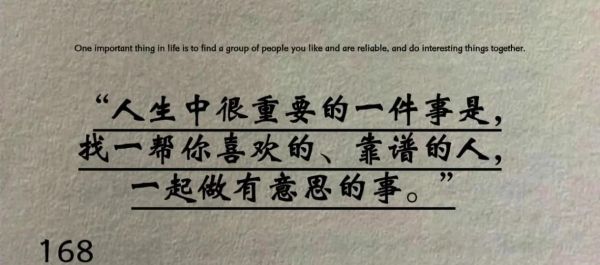 One important thing in life is to find a group of people you like and are reliable, and do interesting things together.
“人生中很重要的一件事是,
找一帮你喜欢的、靠谱的人,
一起做有意思的事。”
168